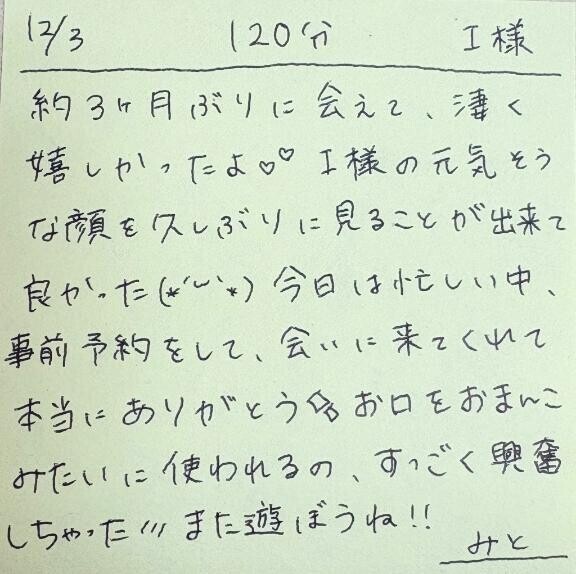 12/3 120分 I様
約3ヶ月ぶりに会えて、凄く
嬉しかったよ♡♡ I様の元気そう
な顔を久しぶりに見ることが出来て
良かった(*˘︶˘*) 今日は忙しい中、
事前予約をして、会いに来てくれて
本当にありがとう✨ お口をおまんこ
みたいに使われるの、すっごく興奮
しちゃった/// また遊ぼうね!!
みと